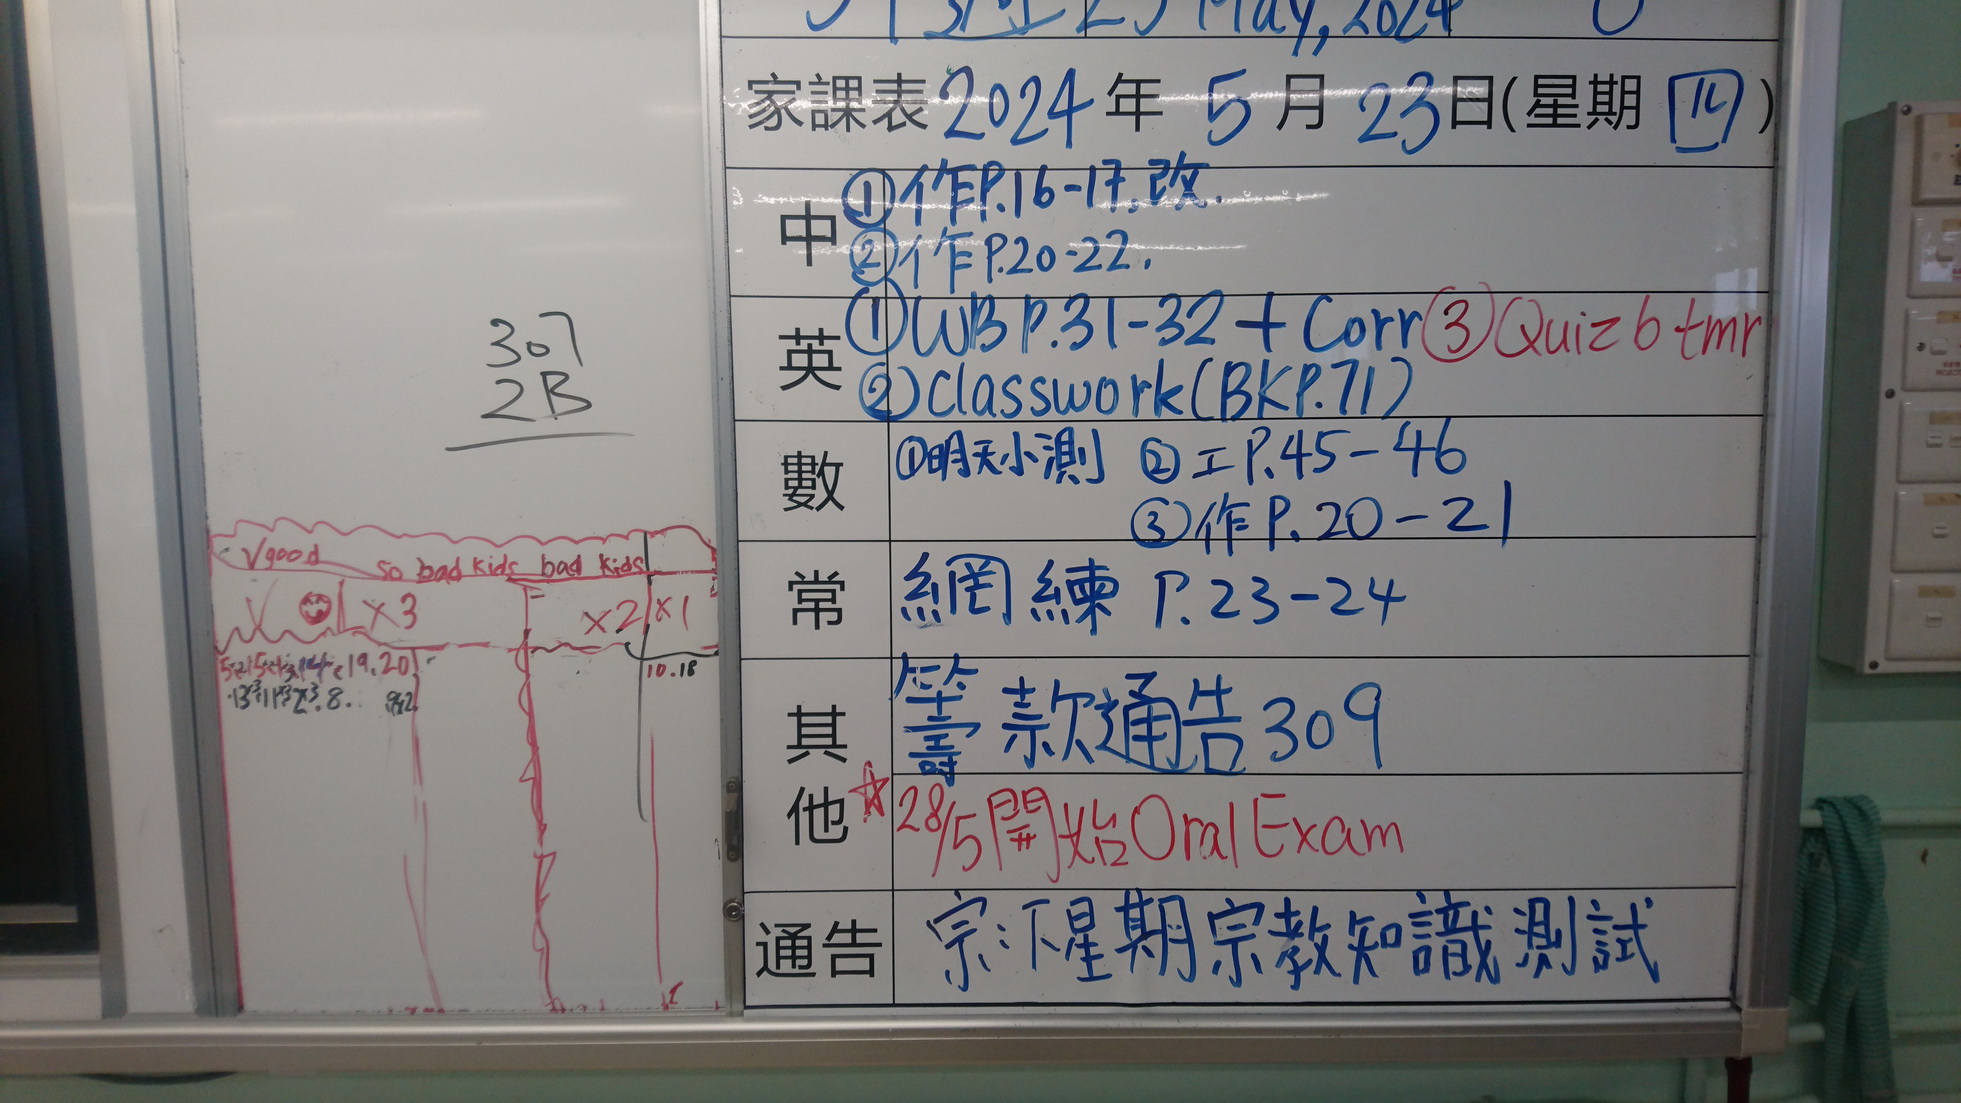 307
2B
Vgood so bad kids bad kids
V x3 x2 x1
19.20
8.
10.18
May, 2024
家課表 2024 年 5 月 23 日(星期 四)
中
①作P.16-17.改.
②作P.20-22.
英
①WB P.31-32 + Corr ③Quiz 6 tmr
②Classwork (BK P.71)
數
①明天小測 ②工P.45-46
③作P.20-21
常
網練 P.23-24
其他
籌款通告309
☆28/5開始Oral Exam
通告
宗:下星期宗教知識測試